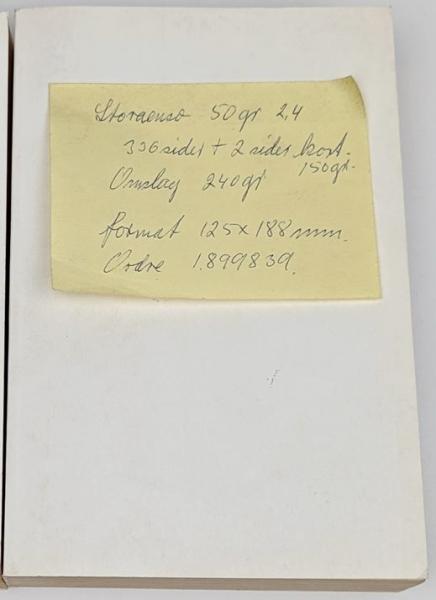 Storaenso 50gr 2,4
336 sider + 2 sider kort.
150gr.
Omslag 240gr
format 125x188mm.
Ordre 1.899839.